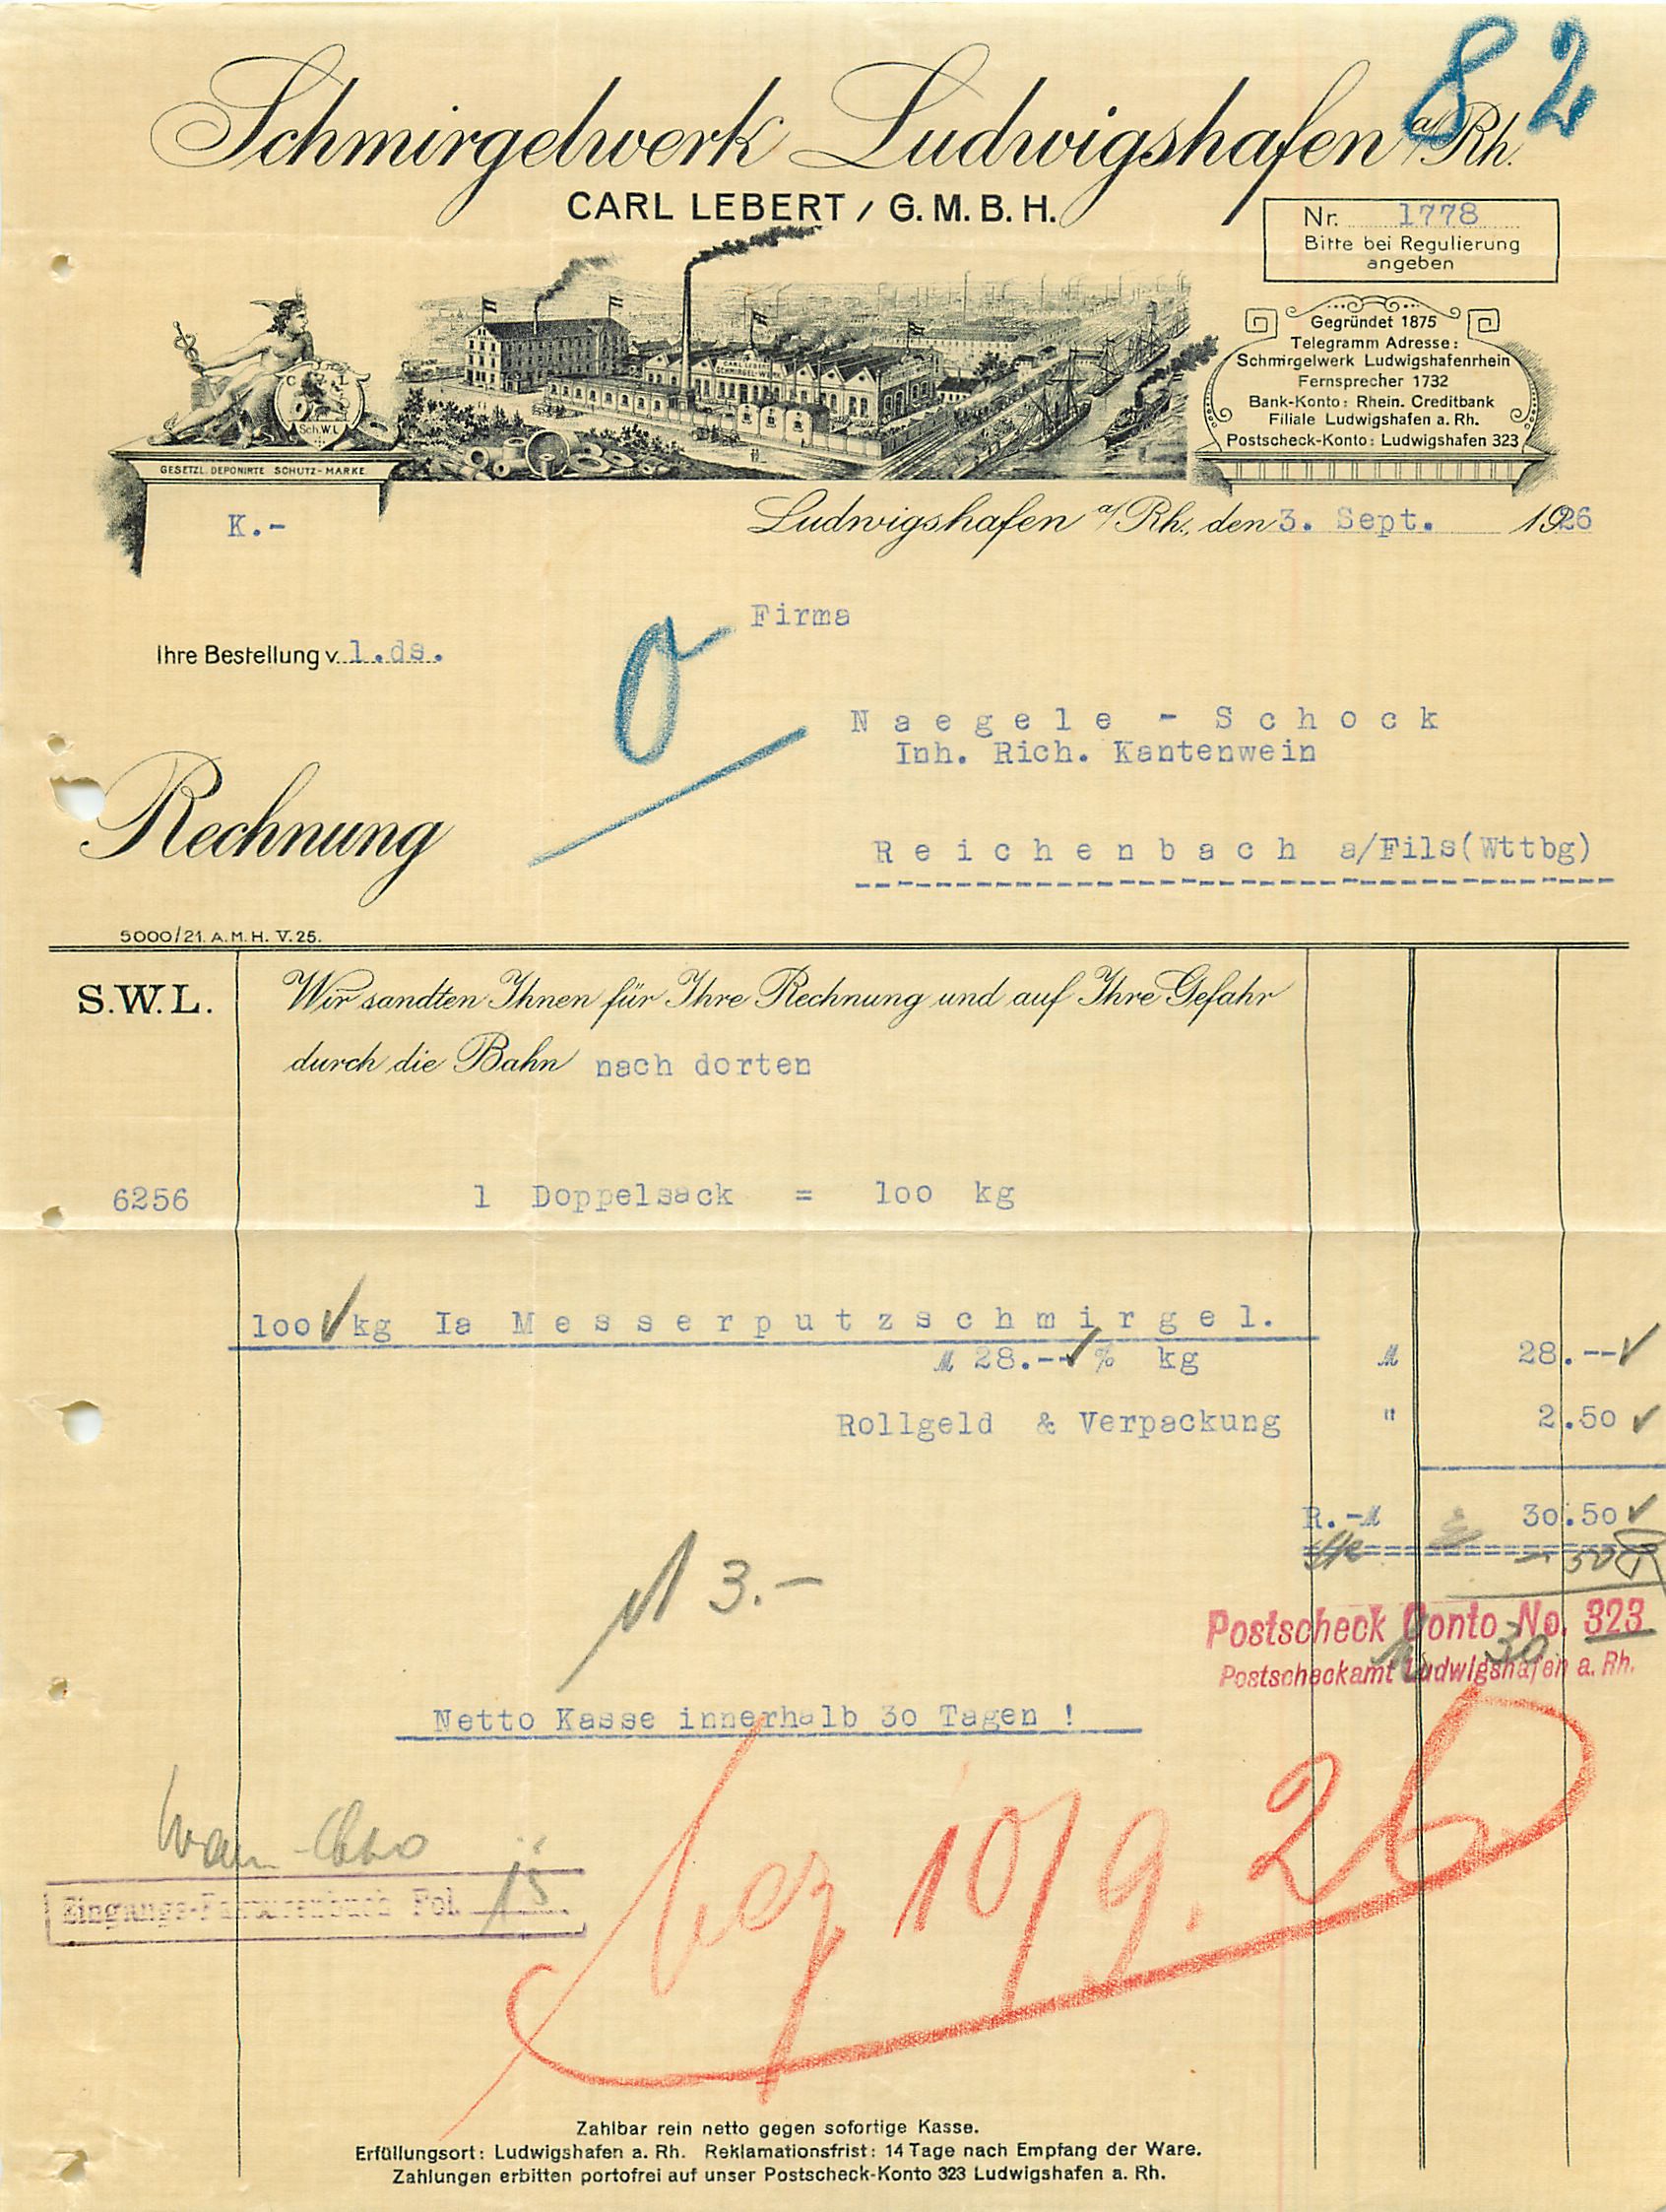 82
Schmirgelwerk Ludwigshafen a/Rh.
CARL LEBERT / G.M.B.H.
Nr. 1778
Bitte bei Regulierung
angeben
CARL LEBERT
SCHMIRGEL-WERK
C L
Sch.W.L
GESETZL. DEPONIRTE SCHUTZ-MARKE.
Gegründet 1875
Telegramm Adresse:
Schmirgelwerk Ludwigshafenrhein
Fernsprecher 1732
Bank-Konto: Rhein. Creditbank
Filiale Ludwigshafen a. Rh.
Postscheck-Konto: Ludwigshafen 323
K.-
Ludwigshafen a/Rh., den 3. Sept. 1926
Firma
Ihre Bestellung v. 1.ds.
Naegele - Schock
Inh. Rich. Kantenwein
Rechnung
Reichenbach a/Fils(Wttbg)
5000/21. A.M.H. V.25.
S.W.L.
Wir sandten Ihnen für Ihre Rechnung und auf Ihre Gefahr
durch die Bahn nach dorten
6256 1 Doppelsack = 100 kg
100 kg Ia Messerputzschmirgel.
M 28.-- % kg M 28.--
Rollgeld & Verpackung " 2.50
R.-M 30.50
50
M 3.-
Postscheck Conto No. 323
30
Postscheckamt Ludwigshafen a. Rh.
Netto Kasse innerhalb 30 Tagen !
Eingangs-Fakturenbuch Fol.
bez 10/9.26
Zahlbar rein netto gegen sofortige Kasse.
Erfüllungsort: Ludwigshafen a. Rh. Reklamationsfrist: 14 Tage nach Empfang der Ware.
Zahlungen erbitten portofrei auf unser Postscheck-Konto 323 Ludwigshafen a. Rh.